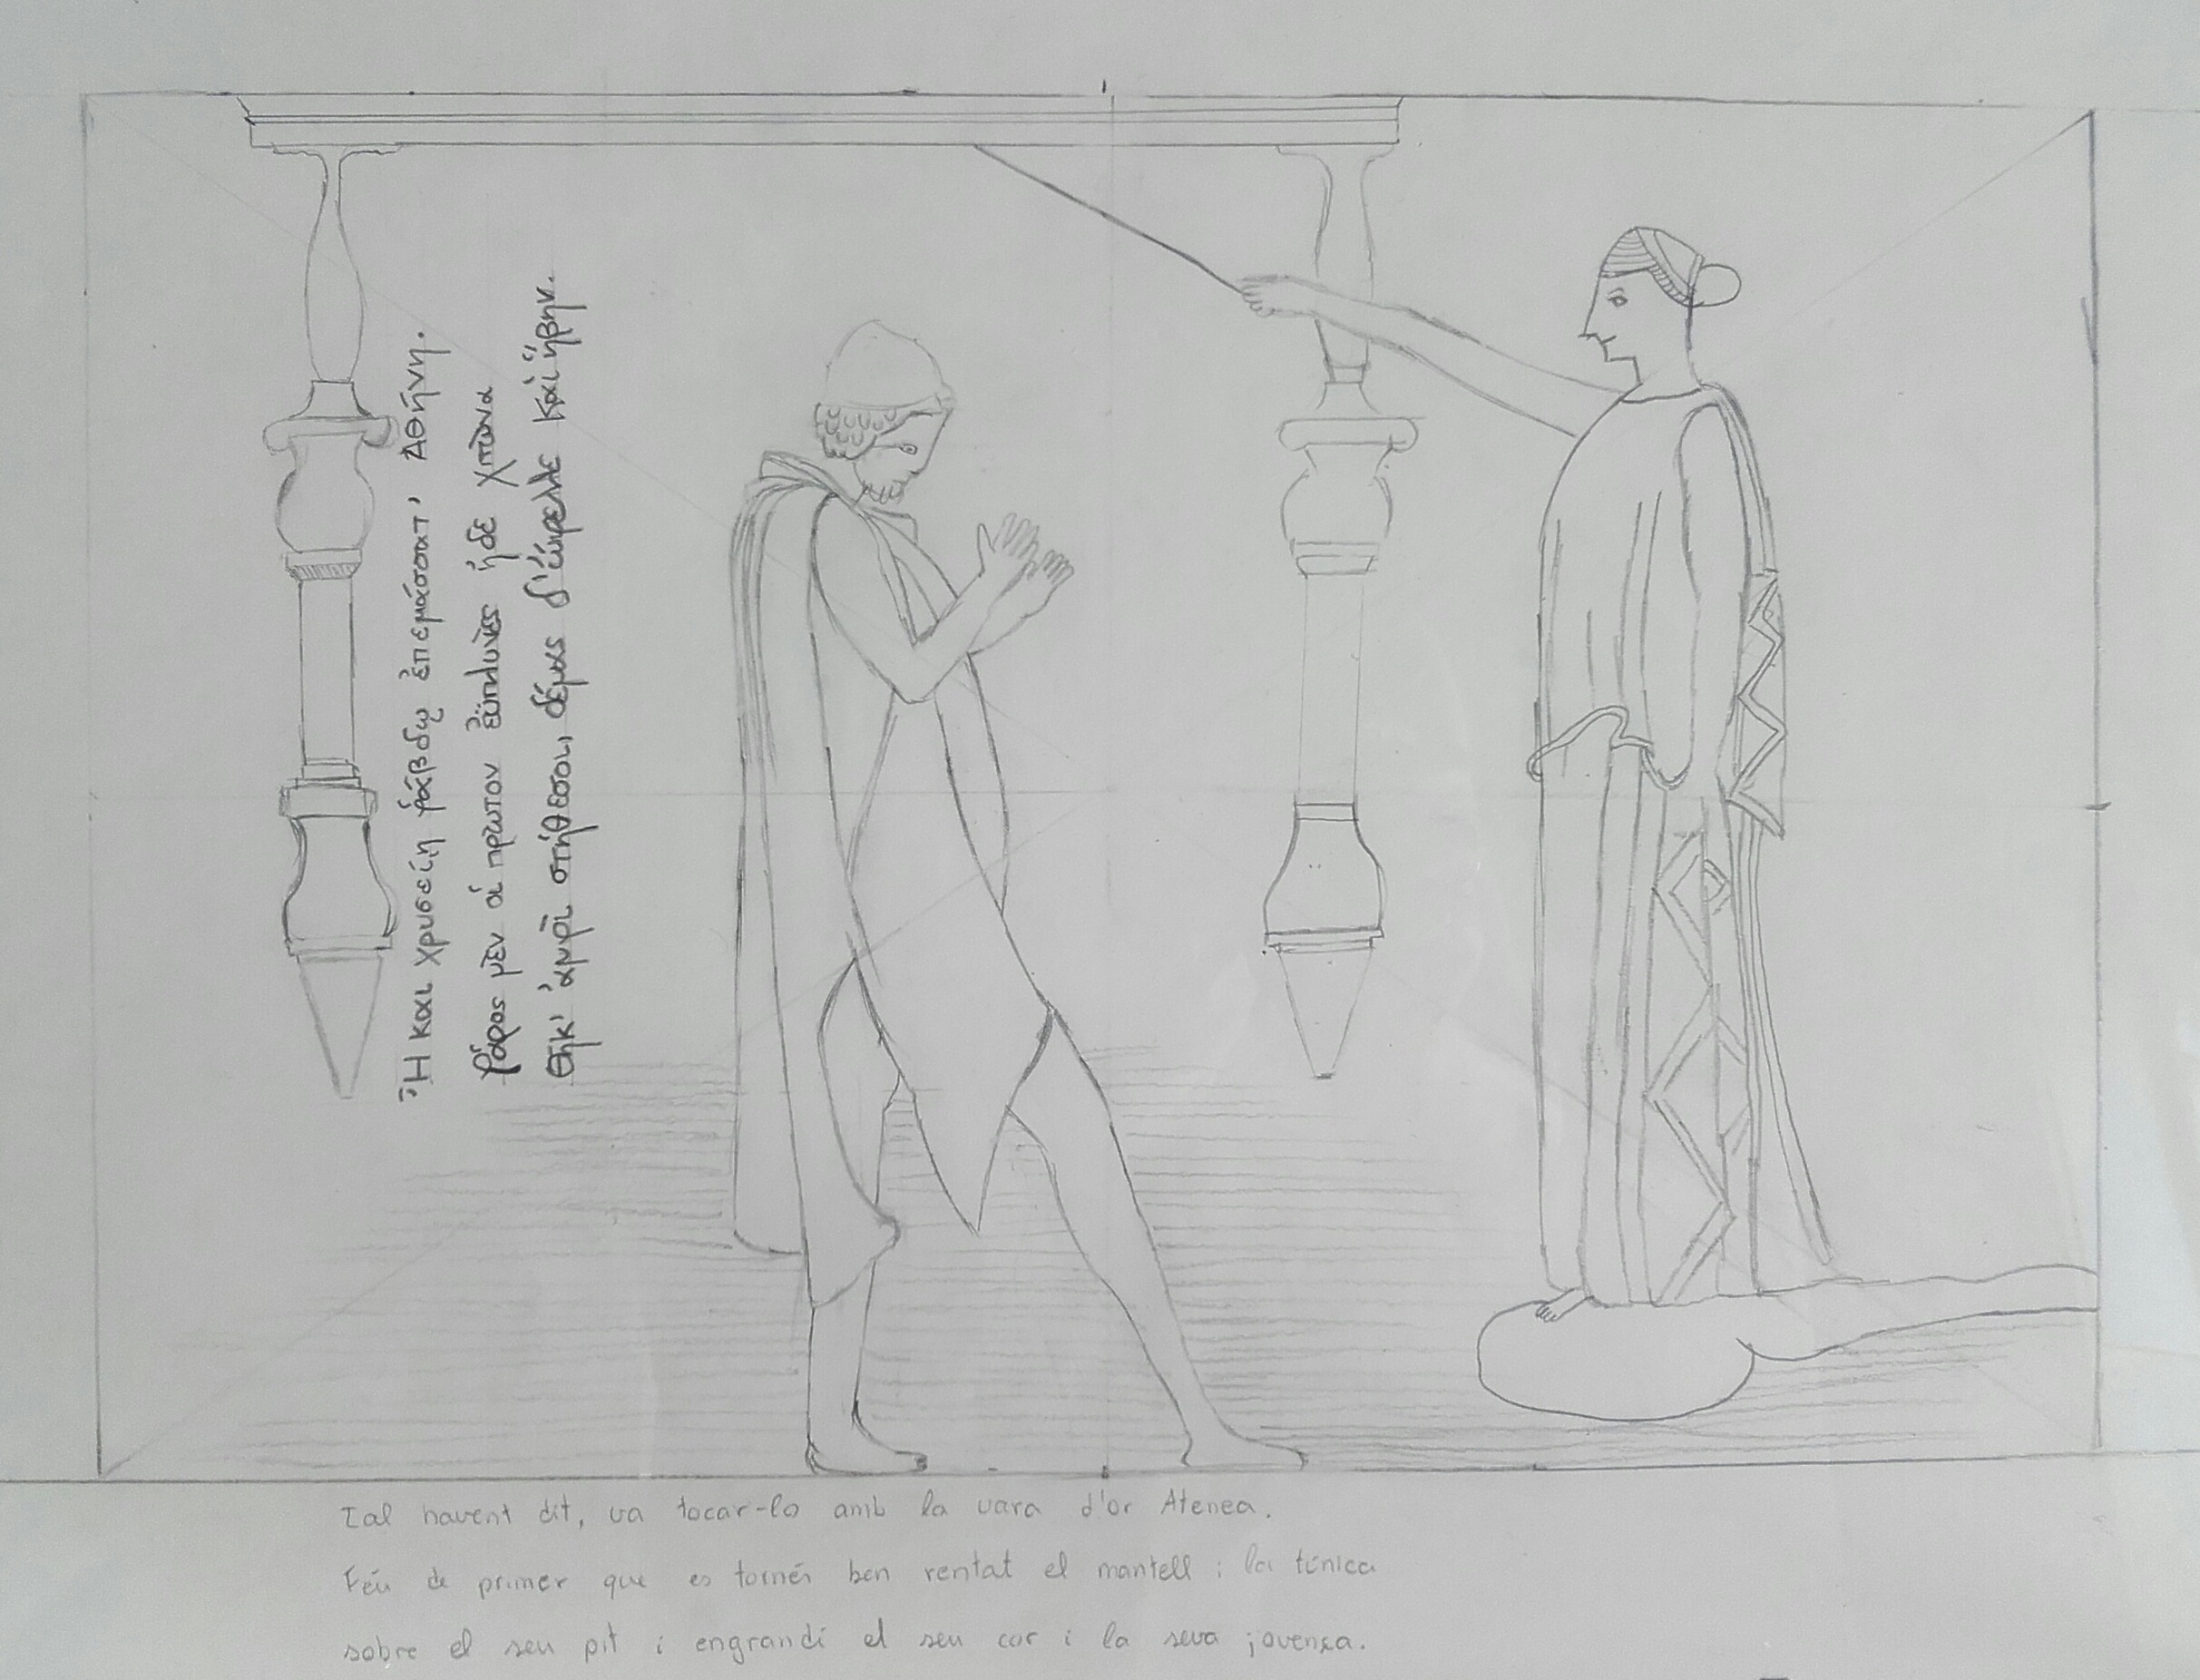 Ἦ καὶ χρυσείη ῥάβδῳ ἐπεμάσσατ’ Ἀθήνη.
φᾶρος μὲν οἱ πρῶτον ἐϋπλυνὲς ἠδὲ χιτῶνα
θῆκ’ ἀμφὶ στήθεσσι, δέμας δ’ ὤφελλε καὶ ἥβην.
Tal havent dit, va tocar-lo amb la vara d'or Atenea.
Féu de primer que es tornés ben rentat el mantell i la túnica
sobre el seu pit i engrandí el seu cor i la seva jovença.